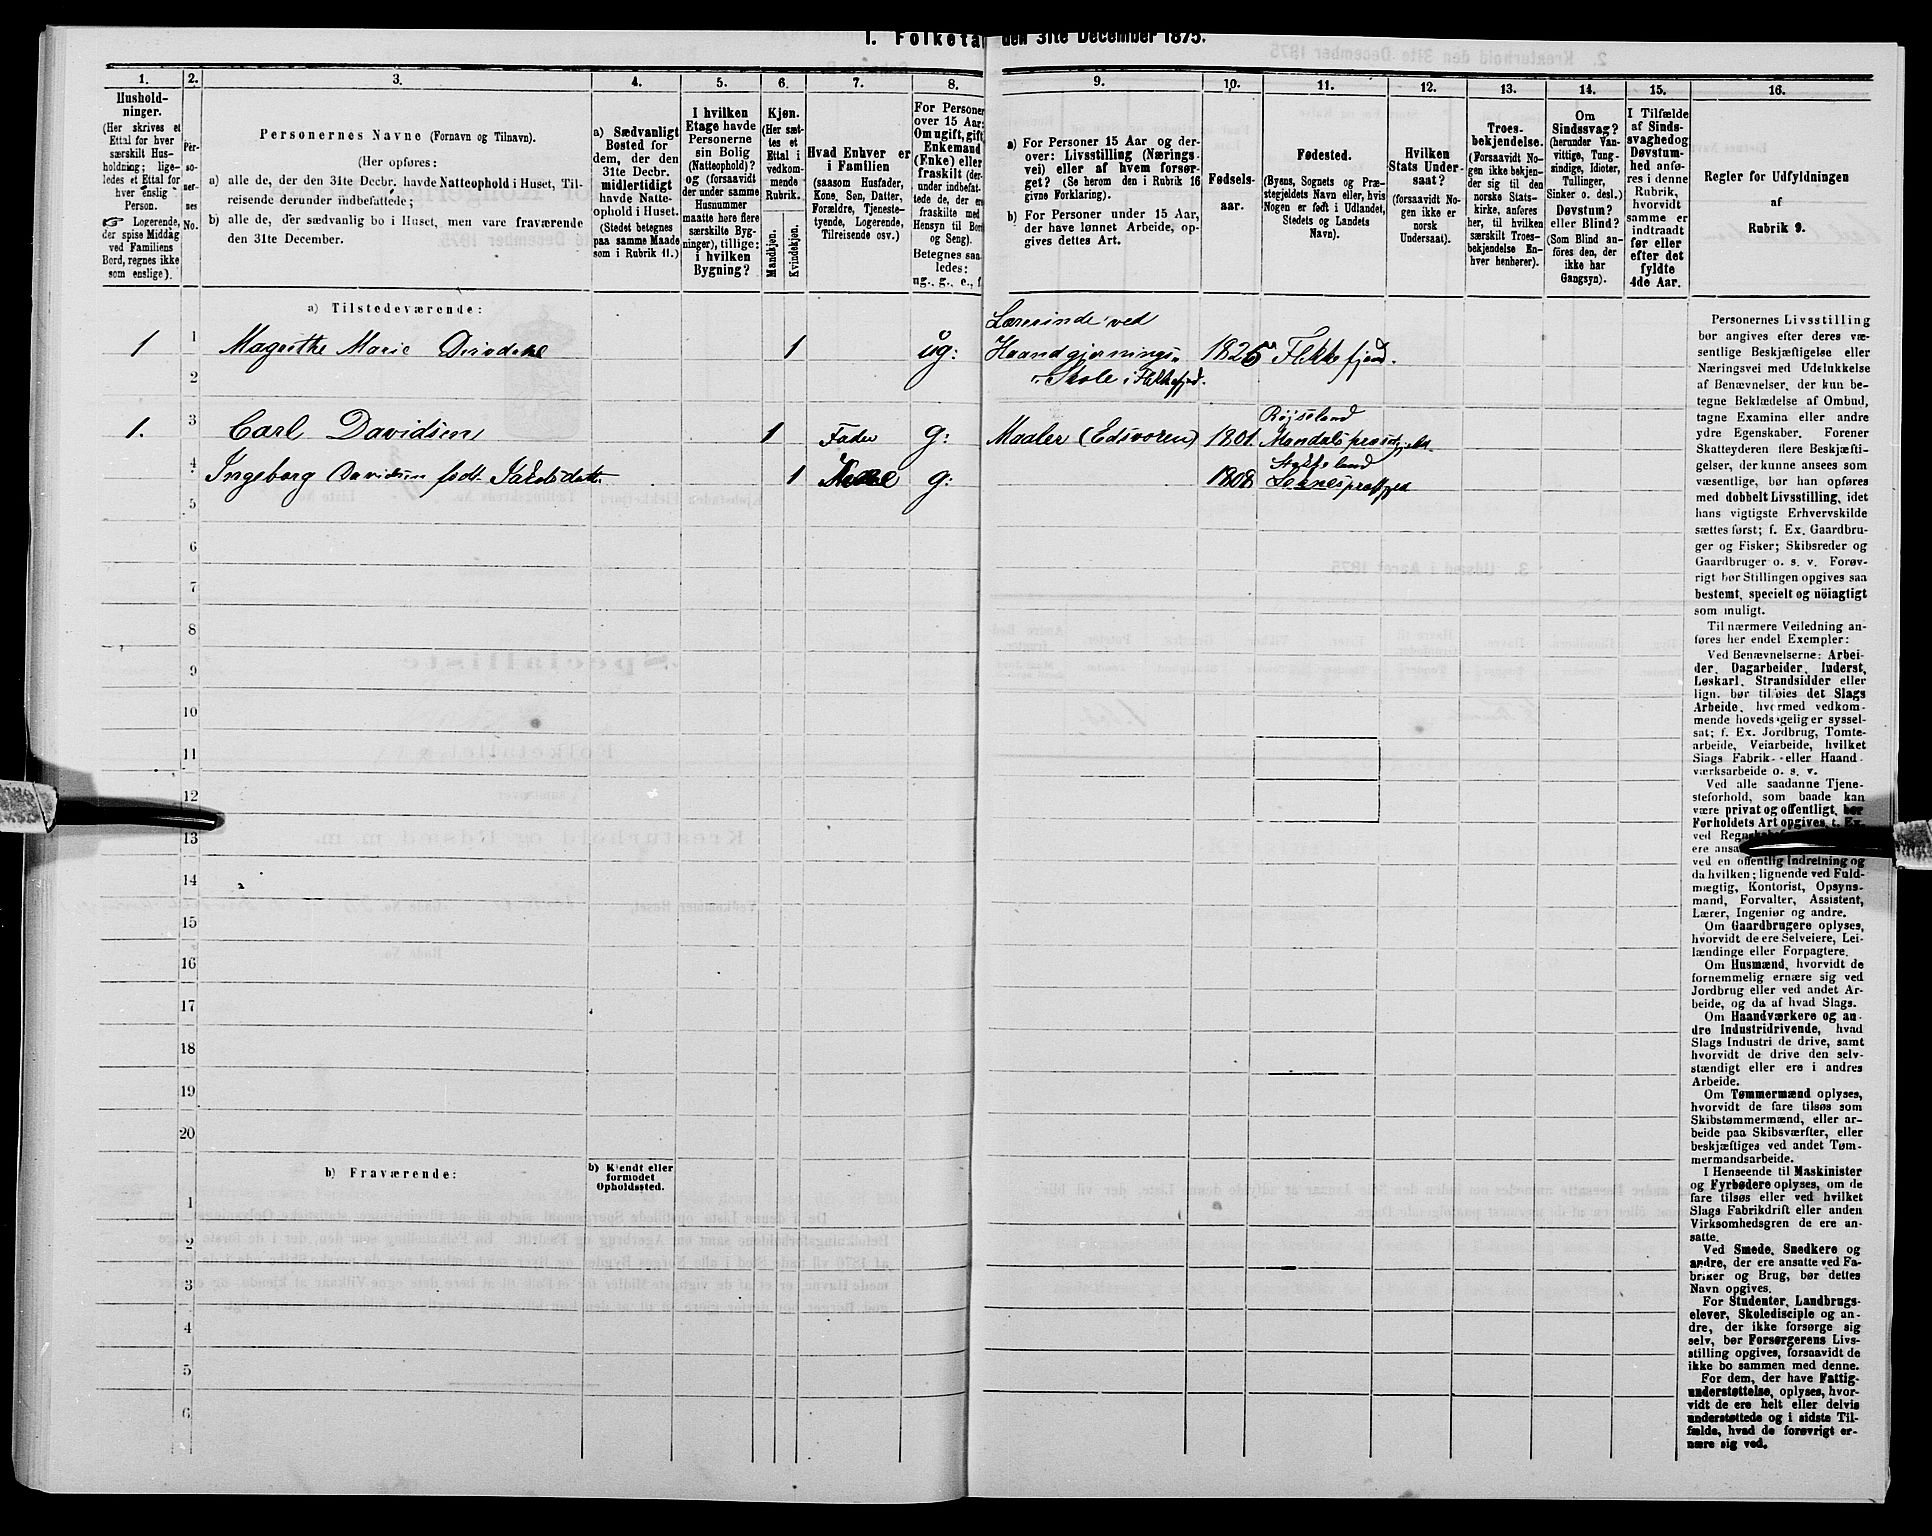 I. Folketal den 31te December 1875.
1. 2. 3. 4. 5. 6. 7. 8. 9. 10. 11. 12. 13. 14. 15. 16.
Hushold-
ninger.
(Her skrives et
Ettal for hver
særskilt Hus-
holdning; lige-
ledes et Ettal for
hver enslig
Person.
☞ Logerende,
der spise Middag
ved Familiens
Bord, regnes ikke
som enslige).
Per-
so-
ner-
nes
No.
Personernes Navne (Fornavn og Tilnavn).
(Her opføres:
a) alle de, der den 31te Decbr. havde Natteophold i Huset, Til-
reisende derunder indbefattede;
b) alle de, der sædvanlig bo i Huset, men vare fraværende
den 31te December.
a) Sædvanligt
Bosted for
dem, der den
31te Decbr.
midlertidigt
havde Natte-
ophold i Huset.
(Stedet betegnes
paa samme Maade
som i Rubrik 11.)
I hvilken
Etage havde
Personerne
sin Bolig
(Natteophold)?
og (forsaavidt
der under samme
Husnummer
maatte høre flere
særskilte Byg-
ninger), tillige:
i hvilken
Bygning?
Kjøn.
(Her sæt-
tes et
Ettal i
vedkom-
mende
Rubrik.
Mandkjøn.
Kvindekjøn.
Hvad Enhver er
i Familien
(saasom Husfader,
Kone, Søn, Datter,
Forældre, Tjeneste-
tyende, Logerende,
Tilreisende osv.)
For Personer
over 15 Aar:
Om ugift, gift,
Enkemand
(Enke) eller
fraskilt (der-
under indbefat-
tede de, der ere
fraskilte med
Hensyn til Bord
og Seng).
Betegnes saa-
ledes:
ug., g., e., f.
a) For Personer 15 Aar og der-
over: Livsstilling (Nærings-
vei) eller af hvem forsør-
get? (Se herom den i Rubrik 16
givne Forklaring).
b) For Personer under 15 Aar,
der have lønnet Arbeide, op-
gives dettes Art.
Fødsels-
aar.
Fødested.
(Byens, Sognets og Præ-
stegjeldets Navn eller, hvis
Nogen er født i Udlandet,
Stedets og Landets
Navn).
Hvilken
Stats Under-
saat?
(forsaavidt No-
gen ikke er
norsk
Undersaat).
Troes-
bekjendelse.
(Forsaavidt No-
gen ikke bekjen-
der sig til den
norske Stats-
kirke, anføres
her, til hvilken
særskilt Troes-
bekjendelse En-
hver henhører).
Om
Sindssvag?
(herunder Van-
vittige, Tung-
sindige, Idioter,
Tullinger,
Sinker o. desl.)
Døvstum?
eller Blind?
(Som Blind an-
føres den, der
ikke har
Gangsyn).
I Tilfælde
af Sinds-
svaghed og
Døvstum-
hed anfø-
res i denne
Rubrik,
hvorvidt
samme er
indtraadt
før eller
efter det
fyldte
4de Aar.
Regler for Udfyldningen
af
Rubrik 9.
a) Tilstedeværende:
1 1 Magrethe Marie 1 ug: Lærerinde ved
Haandgjernings-
Skole i Flekkefjord. 1825 Flekkefjord.
2
1. 3 Carl Davidsen 1 Fader g: Maaler (Edsvoren) 1801. Røjseland
Mandals præstgjeld
4 Ingeborg Davidsen født Jakobsdatt. 1 g: 1808
5
6
7
8
9
10
11
12
13
14
15
16
17
18
19
20
b) Fraværende:
b) Kjendt eller
formodet
Opholdssted.
1
2
3
4
5
6
Personernes Livsstilling
bør angives efter deres væ-
sentlige Beskjæftigelse eller
Næringsvei med Udelukkelse
af Benævnelser, der kun be-
tegne Beklædelse af Ombud,
tagne Examina eller andre
ydre Egenskaber. Forener
Skatteyderen flere Beskjæfti-
gelser, der kunne ansees som
væsentlige, bør han opføres
med dobbelt Livsstilling, idet
hans vigtigste Erhvervskilde
sættes først; f. Ex. Gaardbru-
ger og Fisker; Skibsreder og
Gaardbruger o. s. v. Forøv-
rigt bør Stillingen opgives saa
bestemt, specielt og nöiagtigt
som muligt.
Til nærmere Veiledning an-
føres her endel Exempler:
Ved Benævnelserne: Arbei-
der, Dagarbeider, Inderst,
Løskarl, Strandsidder eller
lign. bør tilføies det Slags
Arbeide, hvormed vedkom-
mende hovedsagelig er syssel-
sat; f. Ex. Jordbrug, Tomte-
arbeide, Veiarbeide, hvilket
Slags Fabrik- eller Haand
værksarbeide o. s. v.
Ved alle saadanne Tjene-
steforhold, som baade kan
være privat og offentligt, bør
Forholdets Art opgives
ved
ere
ved en offentlig Indretning og
da hvilken; lignende ved Fuld-
mægtig, Kontorist, Opsyns-
mand, Forvalter, Assistent,
Lærer, Ingeniør og andre.
Om Gaardbrugere oplyses,
hvorvidt de ere Selveiere, Lei-
lændinge eller Forpagtere.
Om Husmænd, hvorvidt de
fornemmelig ernære sig ved
Jordbrug eller ved andet Ar-
beide, og da af hvad Slags.
Om Haandværkere og an-
dre Industridrivende, hvad
Slags Industri de drive, samt
hvorvidt de drive den selv-
stændigt eller ere i andres
Arbeide.
Om Tømmermænd oplyses,
hvorvidt de fare tilsøs som
Skibstømmermænd, eller ar-
beide paa Skibsværfter, eller
beskjæftiges ved andet Tøm-
mermandsarbeide.
I Henseende til Maskinister
og Fyrbødere oplyses, om de
fare tilsøs eller ved hvilket
Slags Fabrikdrift eller anden
Virksomhedsgren de ere an-
satte.
Ved Smede, Snedkere og
andre, der ere ansatte ved Fa-
briker og Brug, bør dettes
Navn opgives.
For Studenter, Landbrugs-
elever, Skoledisciple og an-
dre, der ikke forsørge sig
selv, bør Forsørgerens Livs-
stilling opgives, forsaavidt de
ikke bo sammen med denne.
For dem, der have Fattig-
understøttelse, oplyses, hvor-
vidt de ere helt eller delvis
understøttede og i sidste Til-
fælde, hvad de forøvrigt er-
nære sig ved.